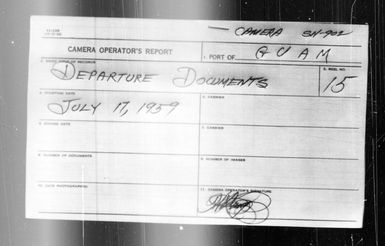 CAMERA SN-902
CAMERA OPERATOR'S REPORT
1. PORT OF GUAM
2. NAME/TYPE OF RECORDS
DEPARTURE DOCUMENTS
3. REEL NO.
15
4. STARTING DATE
JULY 17, 1959
5. CARRIER
6. ENDING DATE
7. CARRIER
8. NUMBER OF DOCUMENTS
9. NUMBER OF IMAGES
10. DATE PHOTOGRAPHED
11. CAMERA OPERATOR'S SIGNATURE